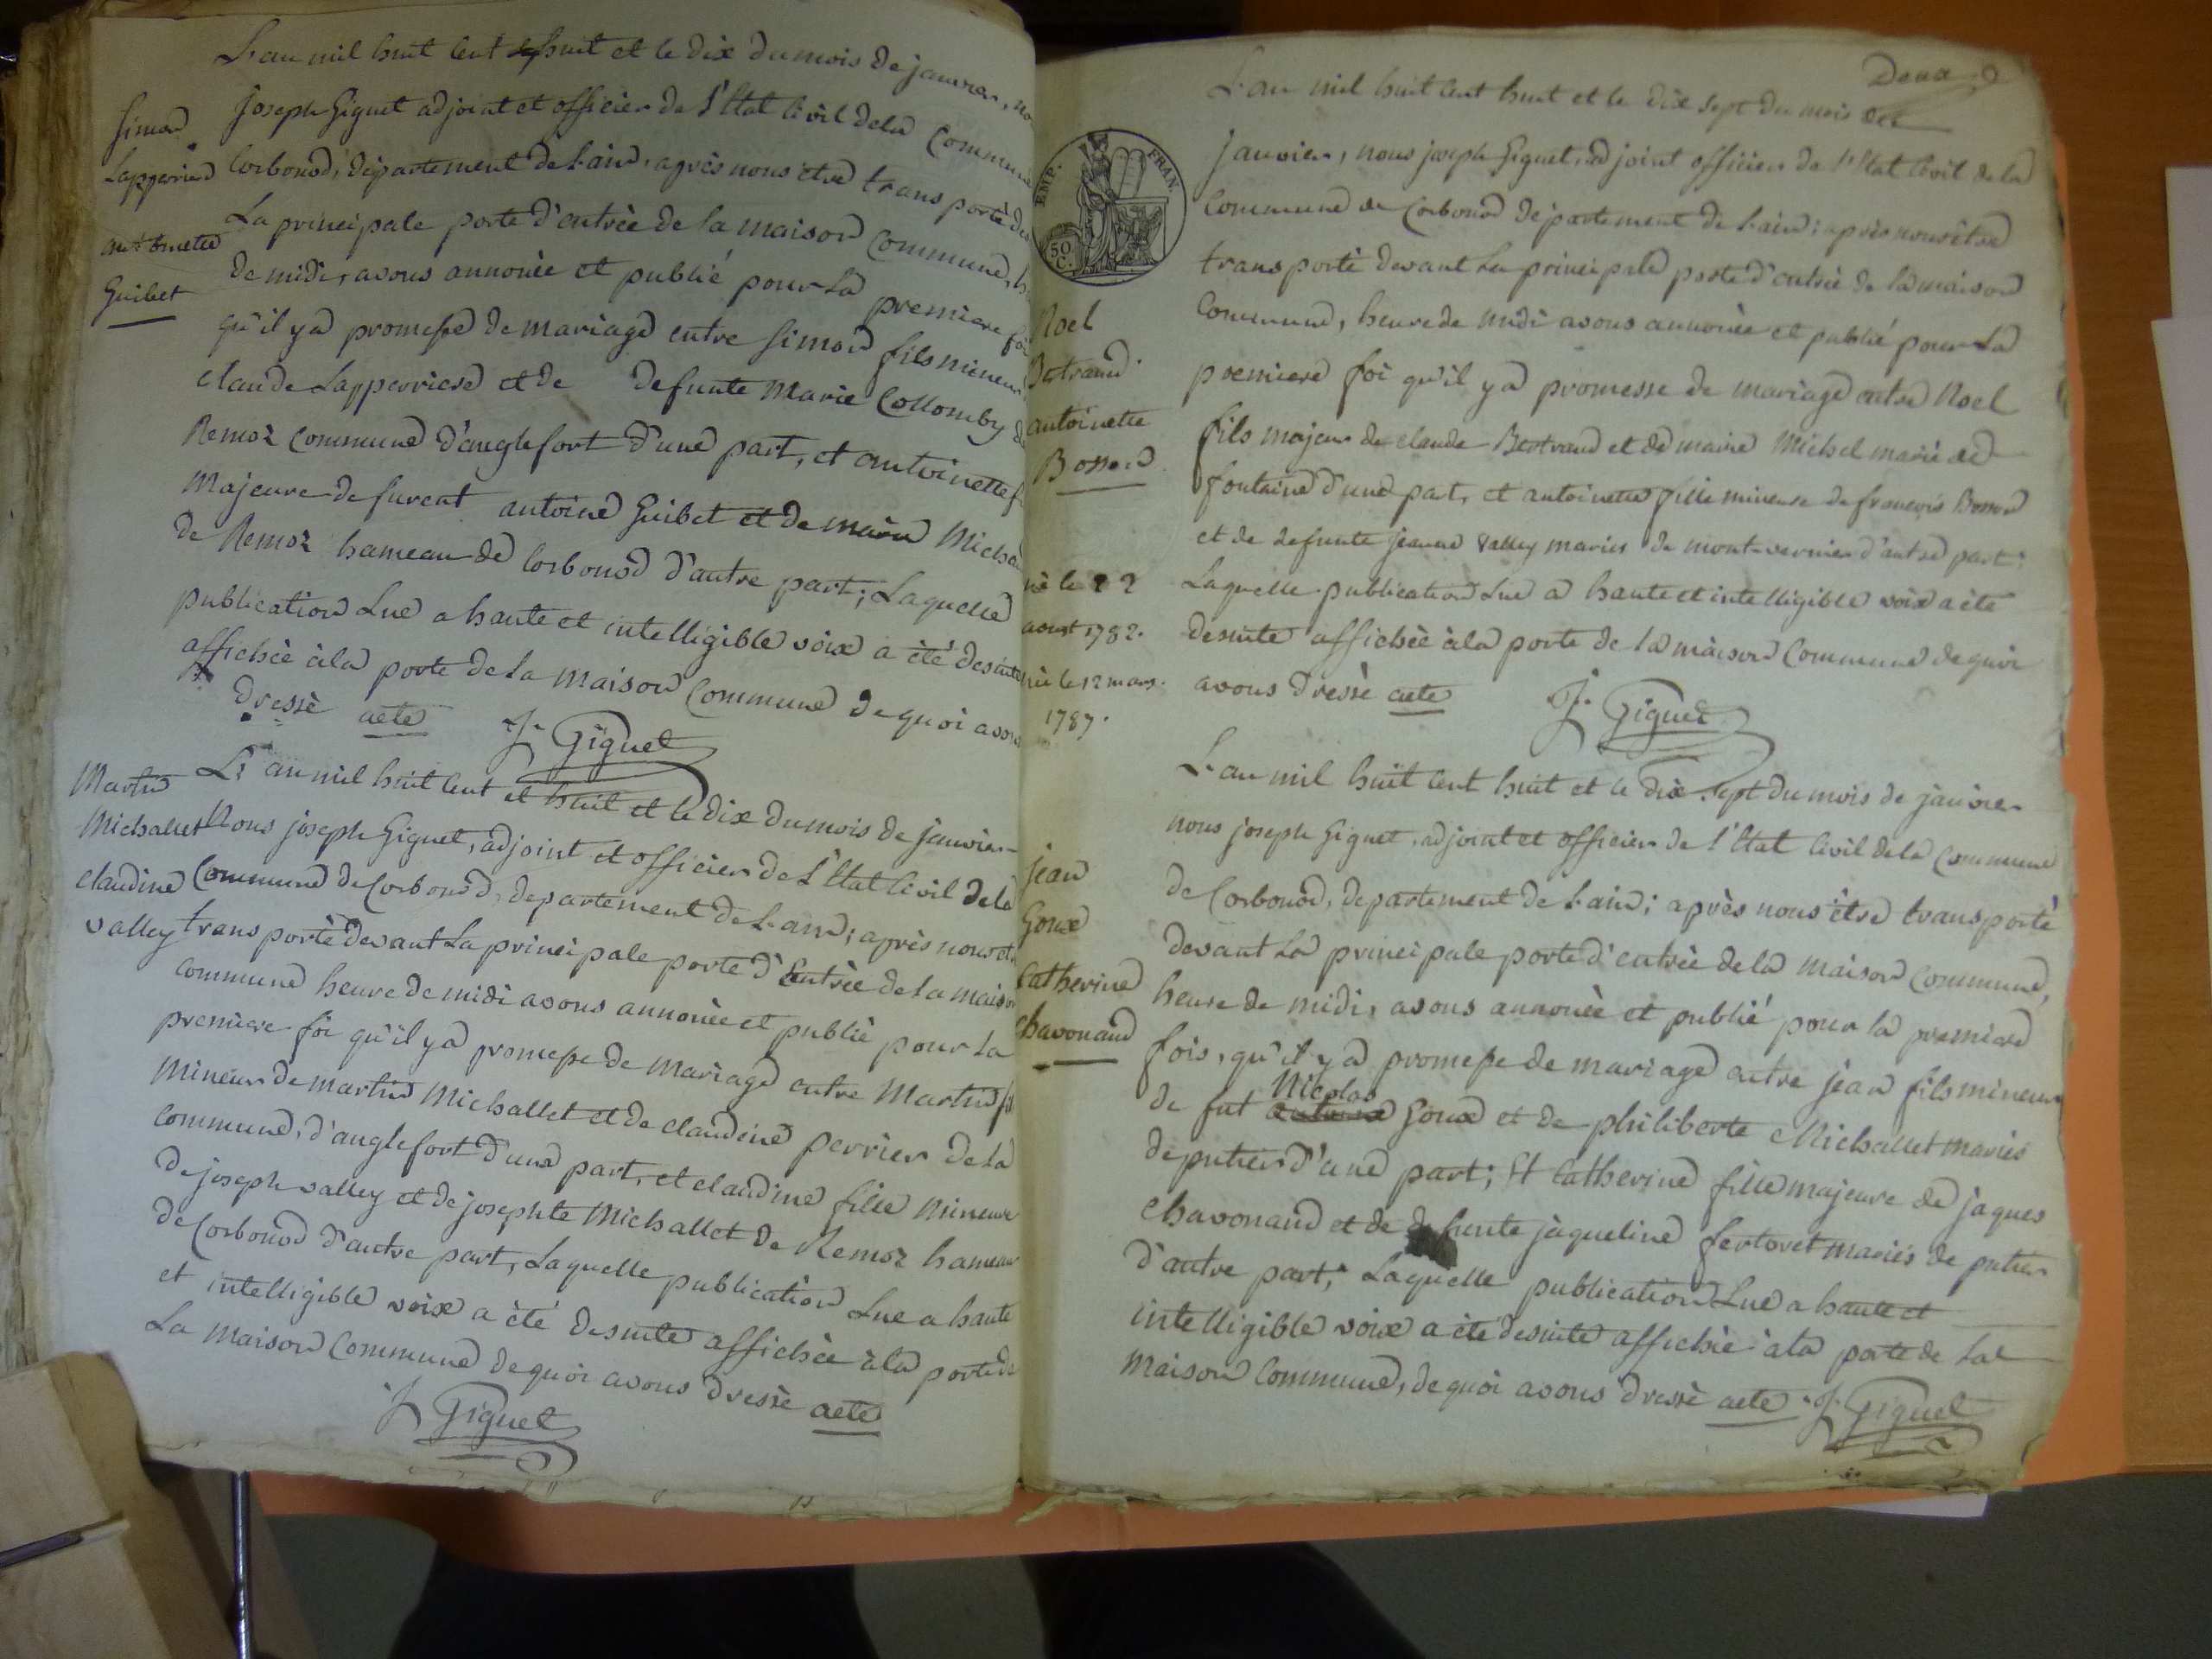 L'an mil huit cent huit et le dix du mois de janvier, no
Joseph Giguet adjoint et officier de l'Etat Civil dela Commune
Simon
Lapperriere
antoinette
Guibet
Corbonod, département de L'ain, après nous être transporté dev
La principale porte d'entrée de la maison Commune, h
de midi, avons annoncé et publié pour La premiere foi
qu'il ya promesse de mariage entre Simon fils mineur
claude Lapperriere et de defunte Marie Collomby de
Remoz Commune d'anglefort d'une part, et antoinette f
Majeure de furent antoine Guibet et de marie Michau
de Remoz hameau de Corbonod d'autre part; Laquelle
publication Lue a haute et intelligible voix a été desuite
affichée à la porte de La maison Commune de quoi avons
dressé acte J. Giguet
Martin
Michallet
claudine
valley
L'an mil huit cent et huit et le dix du mois de janvier
Nous joseph Giguet, adjoint et officier de L'Etat Civil de la
Commune de Corbonod, departement de L'ain; après nous etre
transporté devant La principale porte d'Entrée de la maison
Commune heure de midi avons annoncée et publié pour La
premiere foi qu'il ya promesse de mariage entre Martin fi
Mineur de martin Michallet et de claudine perrier de La
commune, d'anglefort d'une part, et claudine fille Mineure
de joseph valley et de josephte Michallet de Remoz hameau
de Corbonod d'autre part, Laquelle publication Lue a haute
et intelligible voix a été desuite affichée à la porte de
La maison Commune de quoi avons dressé acte
J Giguet
Deux
L'an mil huit cent huit et le dix sept du mois de
EMP. FRAN.
50 C.
janvier, nous joseph Giguet, adjoint officier de l'Etat Civil de la
Commune de Corbonod département de L'ain; après nous être
transporté devant La principale porte d'entrée de la maison
Commune, heure de midi avons annoncée et publié pour La
Noel
Bertrand
antoinette
Bosson
né le 22
aoust 1782.
née le 12 mars
1787.
premiere foi qu'il ya promesse de mariage entre Noel
fils majeur de claude Bertrand et de marie Michel marié de
fontaine d'une part, et antoinette fille mineure de françois Bosson
et de defunte jeanne valley mariés de mont-vernier d'autre part;
Laquelle publication Lue a haute et intelligible voix a été
desuite affichée à la porte de la maison Commune de quoi
avons dressé acte J. Giguet
L'an mil huit cent huit et le dix sept du mois de janvier
nous joseph Giguet, adjoint et officier de l'Etat Civil dela Commune
jean
Goux
Catherine
Chavonand
de Corbonod, departement de L'ain; après nous être transporté
devant La principale porte d'entrée dela maison Commune,
heure de midi, avons annoncée et publié pour la premiere
fois, qu'il ya promesse de mariage entre jean fils mineur
Nicolas
de fut antoine Goux et de philiberte Michallet mariés
de putier d'une part; Et Catherine fille majeure de jaques
Chavonand et de defunte jaqueline fertoret mariés de putier
d'autre part; Laquelle publication Lue a haute et
intelligible voix a été desuite affichée à la porte de La
Maison Commune, de quoi avons dressé acte J. Giguet